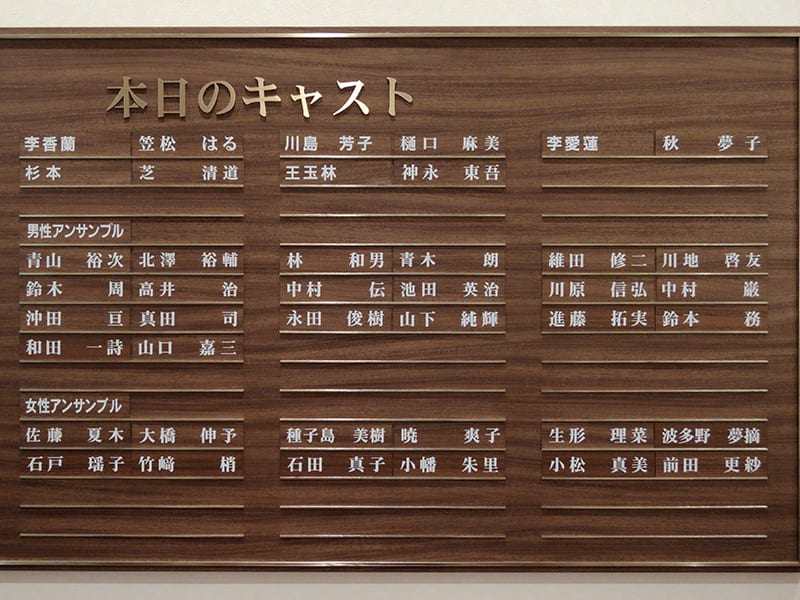 本日のキャスト
李香蘭 笠松 はる 川島 芳子 樋口 麻美 李愛蓮 秋 夢子
杉本 芝 清道 王玉林 神永 東吾
男性アンサンブル
青山 裕次 北澤 裕輔 林 和男 青木 朗 維田 修二 川地 啓友
鈴木 周 高井 治 中村 伝 池田 英治 川原 信弘 中村 巌
沖田 亘 真田 司 永田 俊樹 山下 純輝 進藤 拓実 鈴本 務
和田 一詩 山口 嘉三
女性アンサンブル
佐藤 夏木 大橋 伸予 種子島 美樹 暁 爽子 生形 理菜 波多野 夢摘
石戸 瑶子 竹﨑 梢 石田 真子 小幡 朱里 小松 真美 前田 更紗